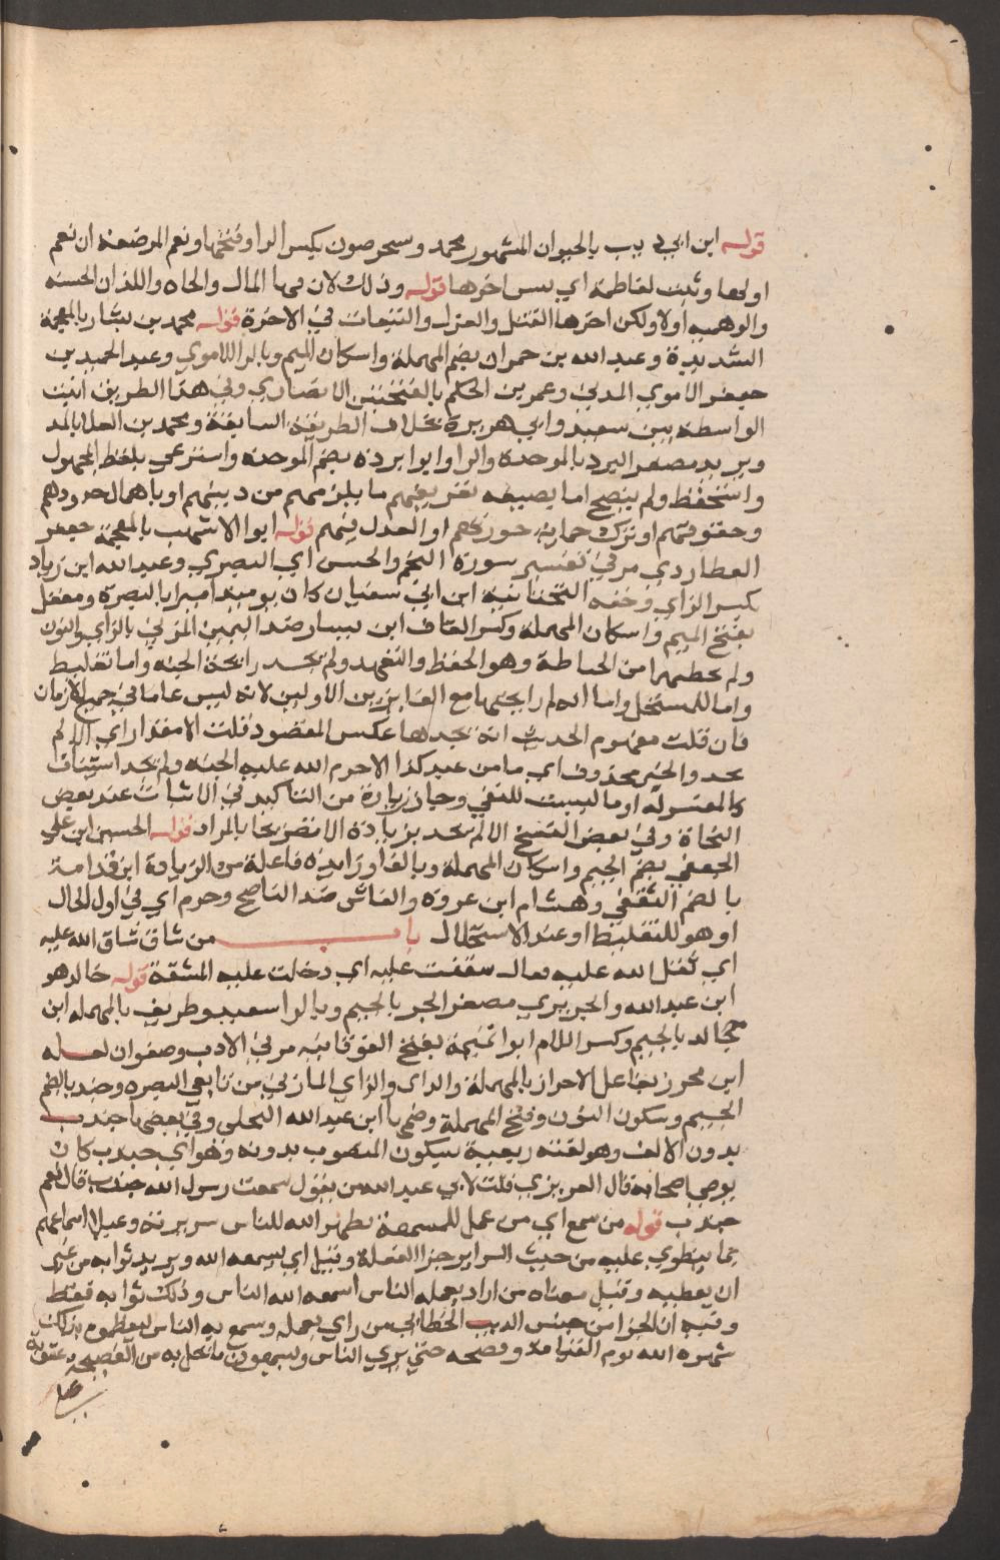 قوله ابن ابي ذيب بالحيوان المشهور محمد وستحرصون بكسر الرا وفتحها ونعم المرضعة اي نعم
اولها وبئست الفاطمة اي بئس اخرها قوله وذلك لان فيها المال والجاه واللذات الحسية
والوهمية اولا ولكن اخرها القتل والعزل والتبعات في الاخرة قوله محمد بن بشار بالمعجمة
الشديدة وعبد الله بن حمران بضم المهملة واسكان الميم وبالرا الاموي وعبد الحميد بن
جعفر الاموي المدني وعمر بن الحكم بالفتحتين الانصاري وفي هذا الطريق اثبت
الواسطة بين سعيد وابي هريرة بخلاف الطريقة السابقة ومحمد بن العلا بالمد
وبريد مصغر البرد بالموحدة والرا وابو بردة بضم الموحدة واسترعي بلفظ المجهول
واستحفظ ولم ينصح اما بضيعه تعريفهم ما يلزمهم من دينهم او باهمال حدودهم
وحقوقهم او ترك حماية حوزتهم او العدل فيهم قوله ابو الاشهب بالمعجمة جعفر
العطاردي مر في تفسير سورة النجم والحسن اي البصري وعبيد الله ابن زياد
بكسر الزاي وخفة التحتانية ابن ابي سفيان كان يوميذ اميرا بالبصرة ومعقل
بفتح الميم واسكان المهملة وكسر القاف ابن يسار ضد اليمين المزني بالزاي والنون
ولم يحطها من الحياطة وهو الحفظ والتعهد ولم يجد رائحة الجنة واما تغليظ
واما للمستحل واما انه لم رايحتها مع الفايزين الاولين لانه ليس عاما في جميع الازمان
فان قلت مفهوم الحديث انه يجدها عكس المقصود قلت الا مقدار اي الا لم
يجد والخبر محذوف اي ما من عبد كذا الا حرم الله عليه الجنة ولم يجد استيناف
كالمفسر له او ما ليست للنفي وجاز زيادة من للتاكيد في الاثبات عند بعض
النحاة وفي بعض النسخ الا لم يجد بزيادة الا تصريحا بالمراد قوله الحسين ابن علي
الجعفي بضم الجيم واسكان المهملة وبالفا وزايدة فاعلة من الزيادة ابن قدامة
بالضم الثقفي وهشام ابن عروة والغاش ضد الناصح وحرم اي في اول الحال
او هو للتغليظ او عند الاستحلال باب من شاق شاق الله عليه
اي ثقل الله عليه يقال شققت عليه اي دخلت عليه المشقة قوله خالد هو
ابن عبد الله والجريري مصغر الجر بالجيم وبالرا سعيد وطريف بالمهملة ابن
مجالد بالجيم وكسر اللام ابو تميمة بفتح الفوقانية مر في الادب وصفوان لعله
ابن محرز بفاعل الاحراز بالمهملة والراي والزاي المازني من تابعي البصرة وجندبا بضم
الجيم وسكون النون وفتح المهملة وضمها ابن عبد الله البجلي وفي بعضها جندب
بدون الالف وهو لغة ربيعة بسكون المنصوب بدونه وهو اي جندب كان
يوصي اصحابه قال الفربري قلت لابي عبد الله من يقول سمعت رسول الله جندب قال نعم
جندب قوله من سمع اي من عمل للسمعة يظهر الله للناس سريرته وعيلا اسماعهم
بما ينطوي عليه من خبث السراير جزا الفعله وقيل اي يسمعه الله ويريد ثوابه من غير
ان يعطيه وقيل معناه من اراد بعمله الناس اسمعه الله الناس وذلك ثوابه فقط
وفيه ان الجزا من جنس الذنب الخطابي من راي بعمله وسمع به الناس ليعظموه بذلك
شهره الله يوم القيامة وفضحه حتي يري الناس ويسمعون ما يحل به من الفضيحة عقوبة